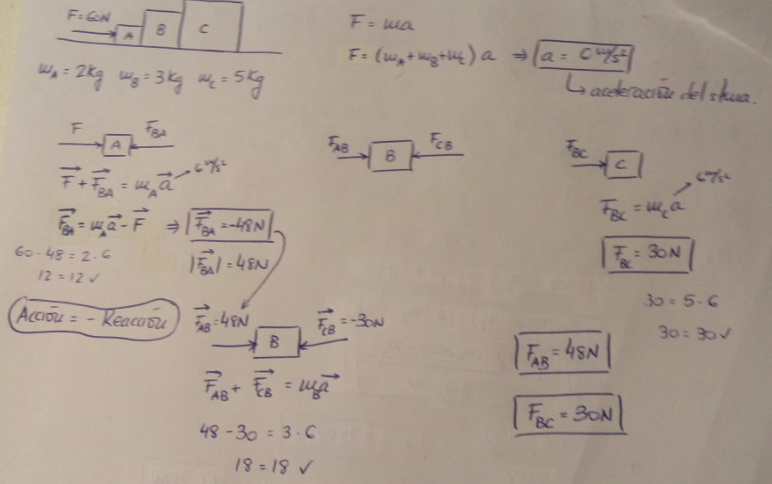 F=60N
A B C
m_A = 2kg m_B = 3kg m_C = 5kg
F = ma
F = (m_A+m_B+m_C) a ⇒ a = 6 m/s²
↳ aceleración del sistema.
F F_BA
A
F + F_BA = m_A a 6 m/s²
F_BA = m_A a - F ⇒ F_BA = -48N
|F_BA| = 48N
60-48 = 2·6
12 = 12 ✓
Acción = - Reacción
F_AB F_CB
B
F_BC
C
6 m/s²
F_BC = m_C a
F_BC = 30N
30 = 5·6
30 = 30 ✓
F_AB = 48N F_CB = -30N
B
F_AB + F_CB = m_B a
48 - 30 = 3·6
18 = 18 ✓
F_AB = 48N
F_BC = 30N